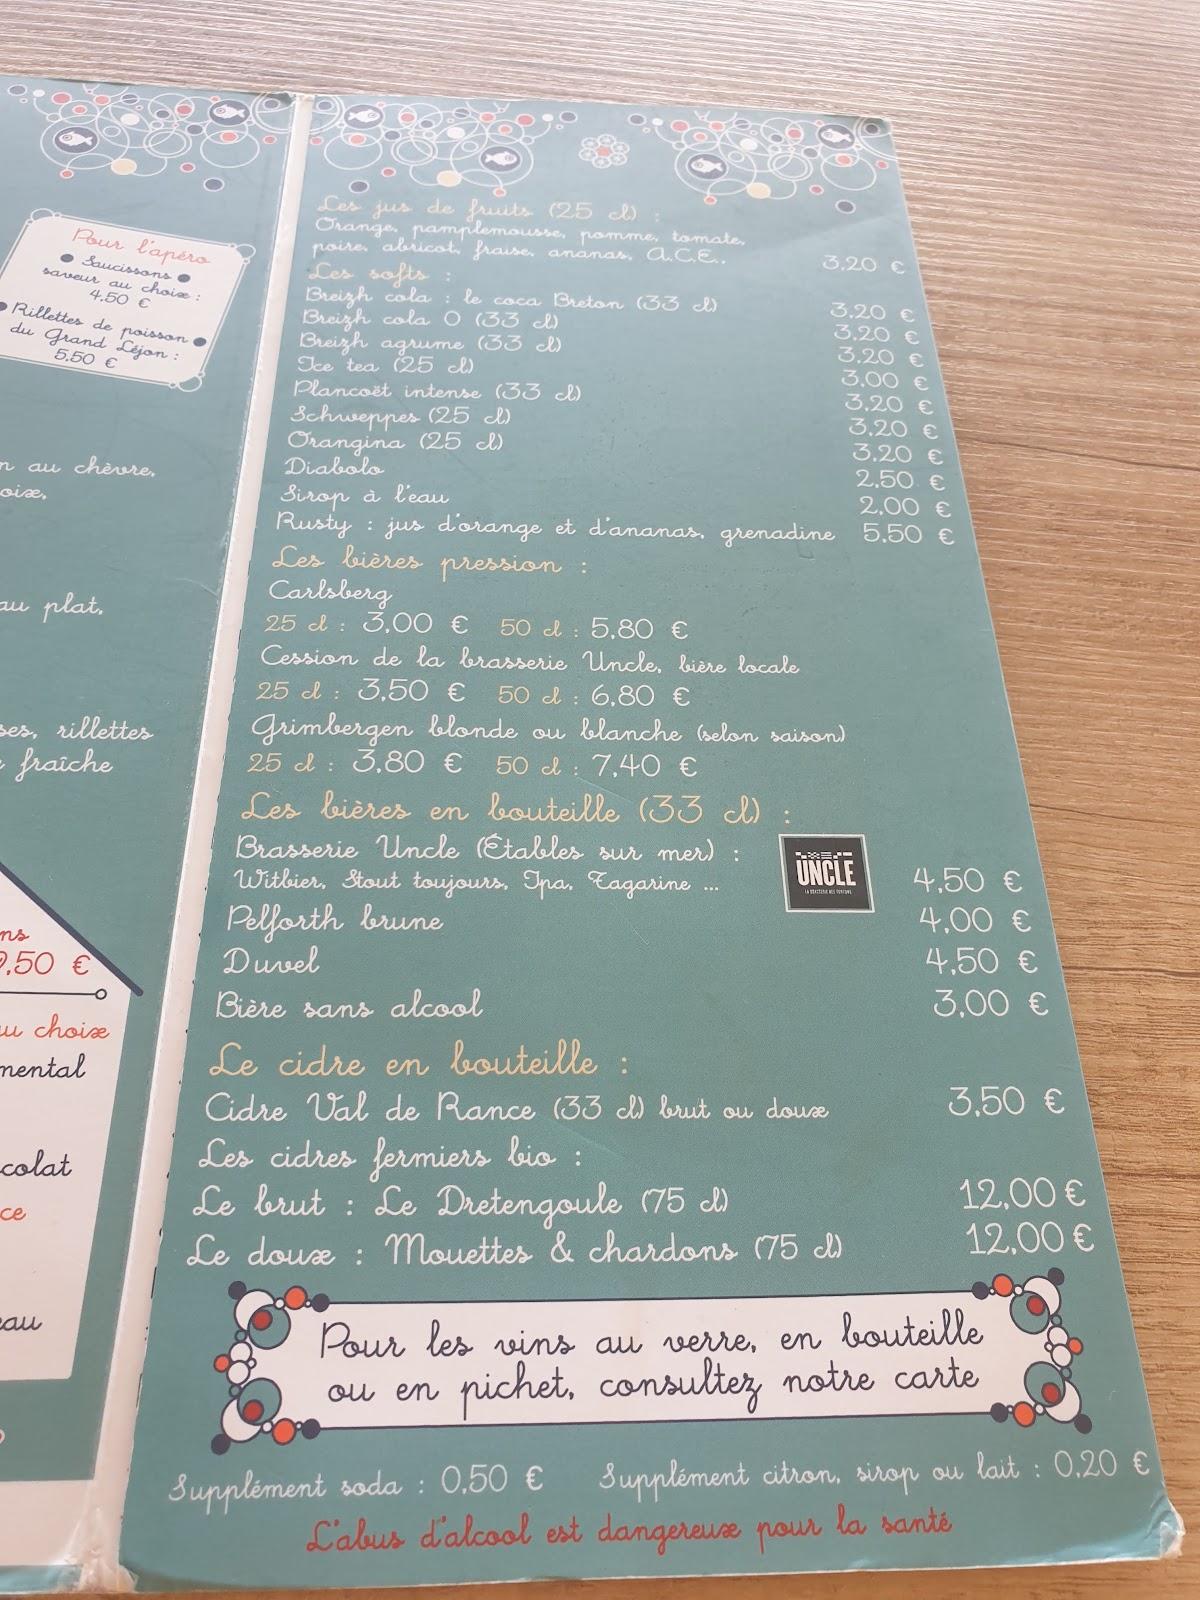 Pour l'apéro
● Saucissons ●
saveur au choix :
4,50 €
● Rillettes de poisson ●
du Grand Léjon :
5,50 €
au chèvre,
au plat,
rillettes
fraîche
9,50 €
au choix
Les jus de fruits (25 cl) :
Orange, pamplemousse, pomme, tomate,
poire, abricot, fraise, ananas, A.C.E.. 3,20 €
Les softs :
Breizh cola : le coca Breton (33 cl) 3,20 €
Breizh cola 0 (33 cl) 3,20 €
Breizh agrume (33 cl) 3,20 €
Ice tea (25 cl) 3,00 €
Plancoët intense (33 cl) 3,20 €
Schweppes (25 cl) 3,20 €
Orangina (25 cl) 3,20 €
Diabolo 2,50 €
Sirop à l'eau 2,00 €
Rusty : jus d'orange et d'ananas, grenadine 5,50 €
Les bières pression :
Carlsberg
25 cl : 3,00 € 50 cl : 5,80 €
Cession de la brasserie Uncle, bière locale
25 cl : 3,50 € 50 cl : 6,80 €
Grimbergen blonde ou blanche (selon saison)
25 cl : 3,80 € 50 cl : 7,40 €
Les bières en bouteille (33 cl) :
Brasserie Uncle (Étables sur mer) :
UNCLE
Witbier, Stout toujours, Ipa, Tagarine ... 4,50 €
Pelforth brune 4,00 €
Duvel 4,50 €
Bière sans alcool 3,00 €
Le cidre en bouteille :
Cidre Val de Rance (33 cl) brut ou doux 3,50 €
Les cidres fermiers bio :
Le brut : Le Dretengoule (75 cl) 12,00 €
Le doux : Mouettes & chardons (75 cl) 12,00 €
Pour les vins au verre, en bouteille
ou en pichet, consultez notre carte
Supplément soda : 0,50 € Supplément citron, sirop ou lait : 0,20 €
L'abus d'alcool est dangereux pour la santé